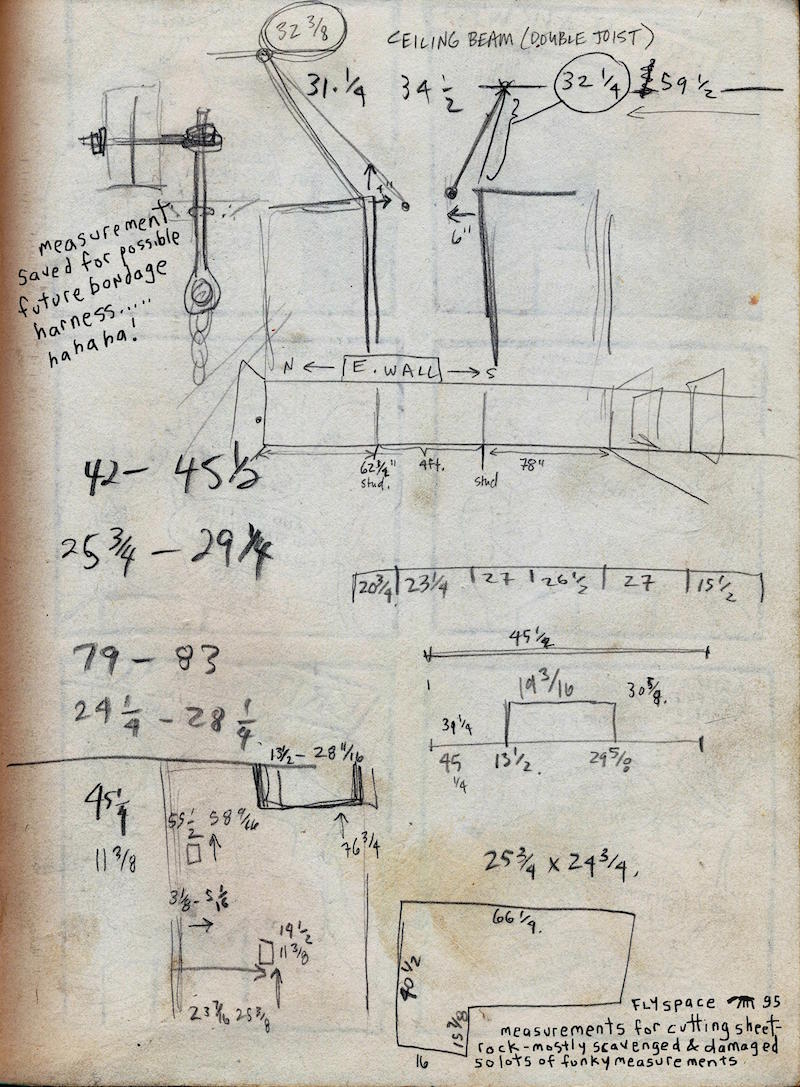 32 3/8
CEILING BEAM (DOUBLE JOIST)
31 1/4
34 1/2
32 1/4
59 1/2
6"
measurement
saved for possible
future bondage
harness.....
hahaha!
N ← E. WALL → S
42 – 45 1/2
62 3/4"
stud.
4ft.
stud
78"
25 3/4 – 29 1/4
20 3/4 23 1/4 27 26 1/2 27 15 1/2
79 – 83
45 1/2
24 1/4 – 28 1/4
19 3/16
30 5/8.
39 1/4
45 1/4
13 1/2.
29 5/8
13 1/2 – 28 11/16
45 1/4
55 1/2 58 9/16
76 3/4
11 3/8
25 3/4 x 24 3/4.
3 1/8 - 5 1/16
14 1/2
11 3/8
66 1/4.
40 1/2
15 3/8
16
23 7/16 25 3/8
FLYSPACE 95
measurements for cutting sheet-
rock-mostly scavenged & damaged
so lots of funky measurements